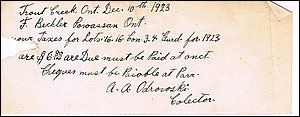 Trout Creek Ont Dec. 10th 1923
F. Beckler Powassan Ont.
your Taxes for Lots. 16.16 Con. 3.4 Gurd. for 1923
are $ 6 are Due must be Paid at onct.
Cheques must be Paiable at Parr.
A. A Odrowski
Colector.